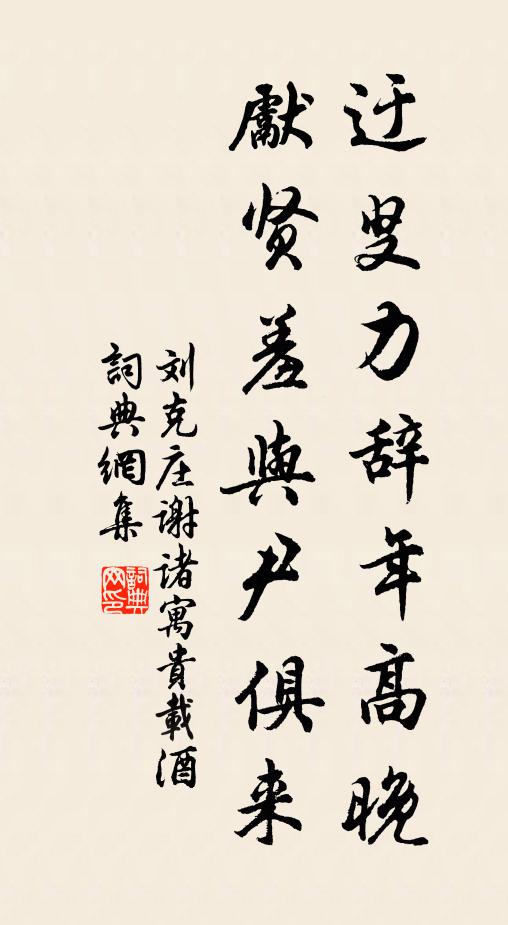 迂叟力辞年高晚
獻贤羞與尹俱来
刘克庄谢诸寓貴載酒
詞典網集
詞典网印